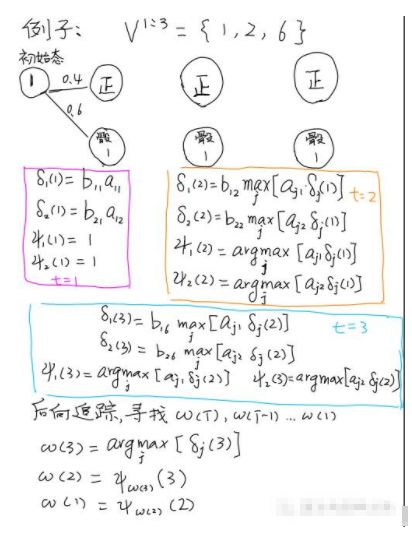 例子: V^{1:3} = {1, 2, 6}
初始态
1 0.4 正 正 正
0.6
骰1 骰1 骰1
δ₁(1) = b₁₁a₁₁
δ₂(1) = b₂₁a₁₂
ψ₁(1) = 1
ψ₂(1) = 1
t=1
δ₁(2) = b₁₂ max_j [a_{j1}·δ_j(1)] t=2
δ₂(2) = b₂₂ max_j [a_{j2} δ_j(1)]
ψ₁(2) = argmax_j [a_{j1}δ_j(1)]
ψ₂(2) = argmax_j [a_{j2}δ_j(1)]
δ₁(3) = b₁₆ max_j [a_{j1} δ_j(2)] t=3
δ₂(3) = b₂₆ max_j [a_{j2} δ_j(2)]
ψ₁(3) = argmax_j [a_{j1}δ_j(2)] ψ₂(3) = argmax[a_{j2} δ_j(2)]
后向追踪, 寻找 ω(T), ω(T-1) ... ω(1)
ω(3) = argmax_j [δ_j(3)]
ω(2) = ψ_{ω(3)}(3)
ω(1) = ψ_{ω(2)}(2)